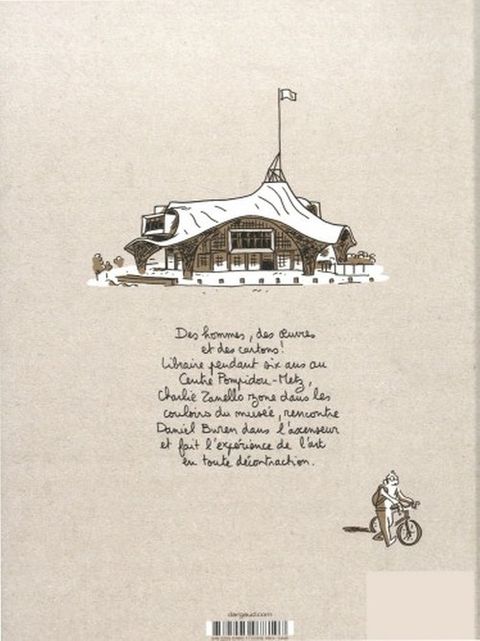 Des hommes, des œuvres
et des cartons!
Libraire pendant six ans au
Centre Pompidou-Metz,
Charlie Zanello zone dans les
couloirs du musée, rencontre
Daniel Buren dans l'ascenseur
et fait l'expérience de l'art
en toute décontraction.
dargaud.com